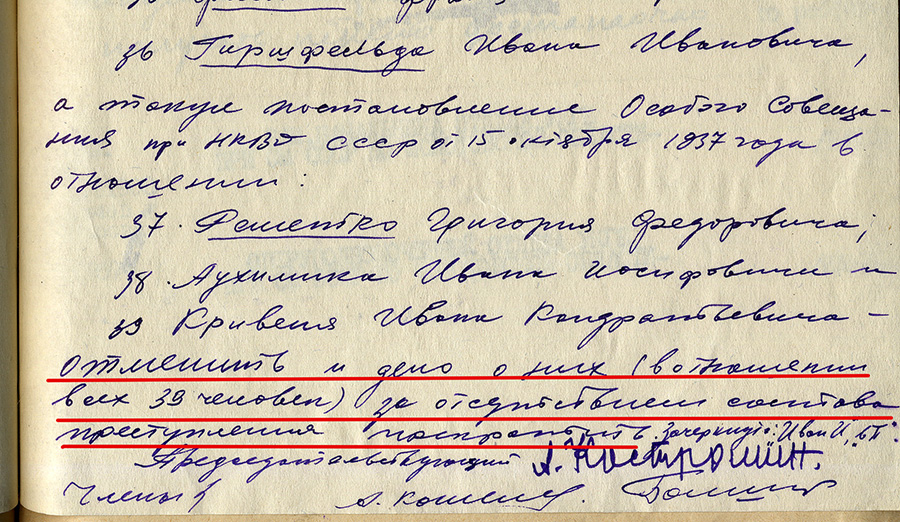 36 Гиршфельда Ивана Ивановича,
а также постановление Особого Совеща-
ния при НКВД СССР от 15 октября 1937 года в
отношении:
37. Фоменко Григория Федоровича;
38. Лухимика Ивана Иосифовича и
39 Кривеня Ивана Кондратьевича -
отменить и дело о них (в отношении
всех 39 человек) за отсутствием состава
преступления прекратить. Зачеркнуто: "Иван И", "вт"
Председательствующий А. Костромин.
Члены